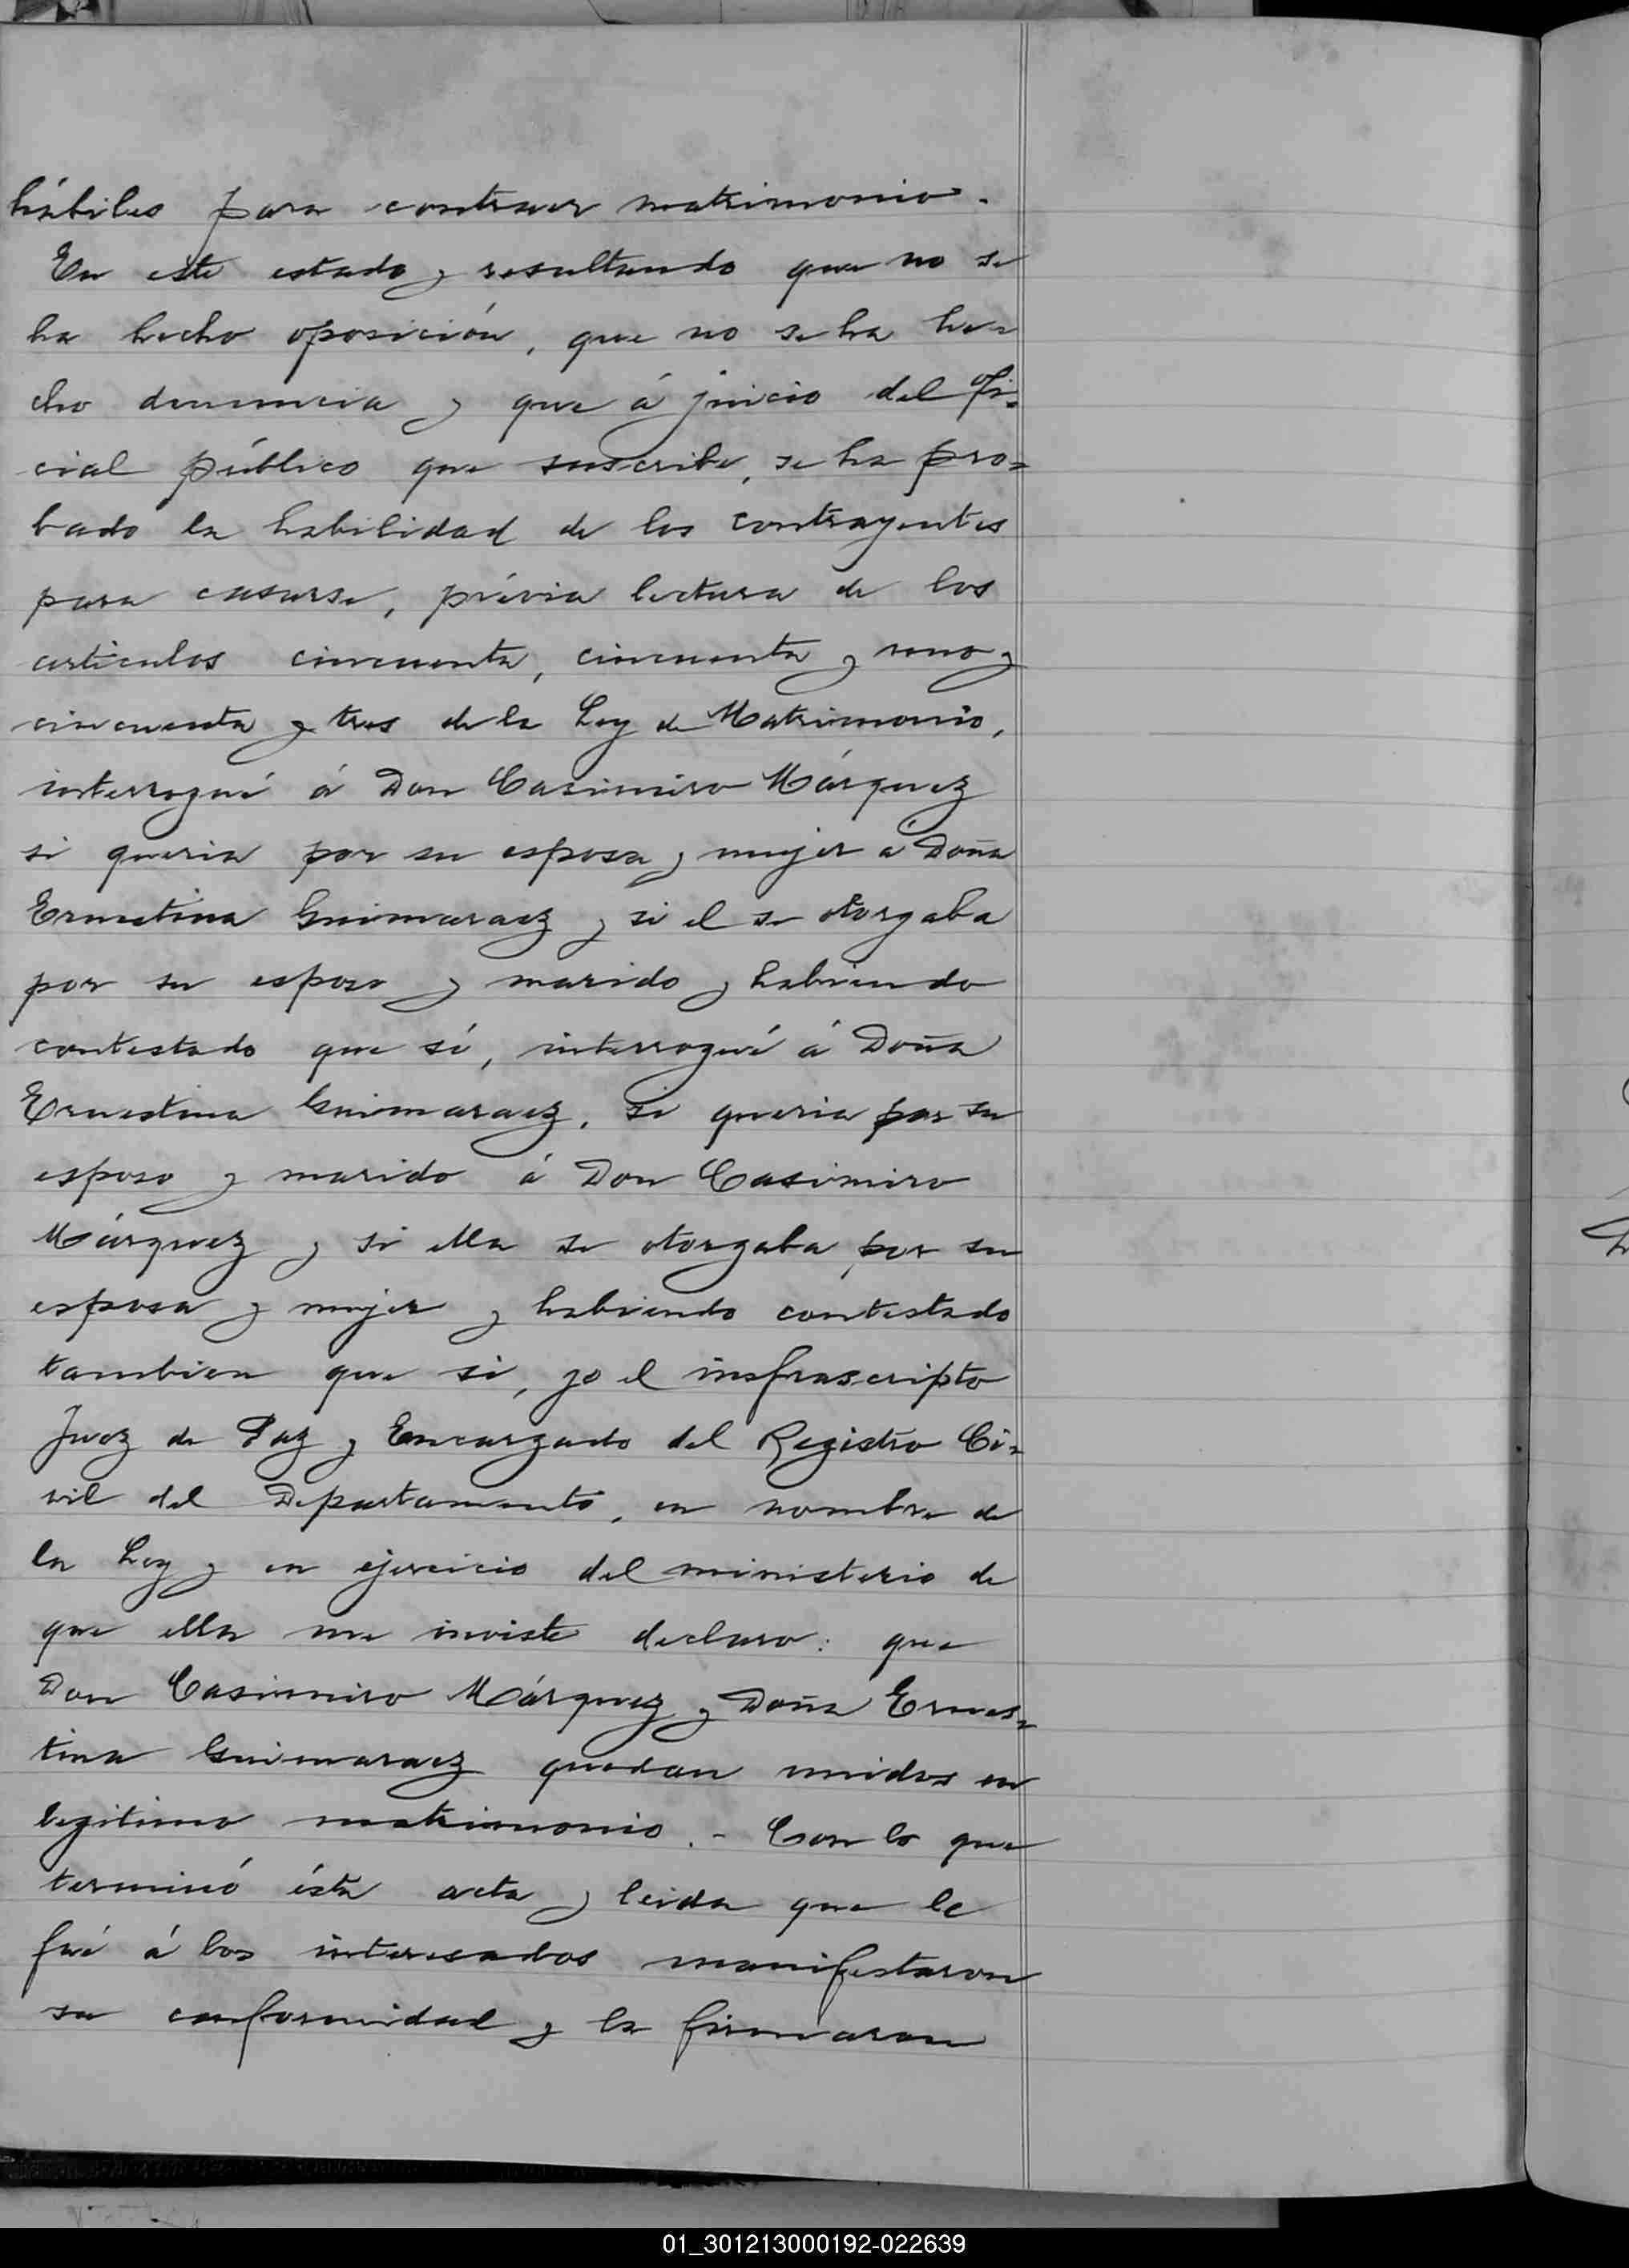 hábiles para contraer matrimonio.
En este estado y resultando que no se
ha hecho oposición, que no se ha he=
cho denuncia y que á juicio del ofi=
cial público que suscribe, se ha pro=
bado la habilidad de los contrayentes
para casarse, prévia lectura de los
articulos cincuenta, cincuenta y uno y
cincuenta y tres de la Ley de Matrimonio,
interrogué á Don Casimiro Márquez
si queria por su esposa y mujer á Doña
Ernestina Guimaraez y si el se otorgaba
por su esposo y marido y habiendo
contestado que sí, interrogué á Doña
Ernestina Guimaraez, si queria por su
esposo y marido á Don Casimiro
Márquez y si ella se otorgaba por su
esposa y mujer y habiendo contestado
tambien que si, yo el insfrascripto
Juez de Paz y Encargado del Registro Ci=
vil del Departamento, en nombre de
la Ley y en ejercicio del ministerio de
que ella me inviste declaro: que
Don Casimiro Márquez y Doña Ernes=
tina Guimaraez quedan unidos en
legitimo matrimonio.- Con lo que
terminó ésta acta y leida que le
fué á los interesados manifestaron
su conformidad y la firmaron
01_301213000192-022639